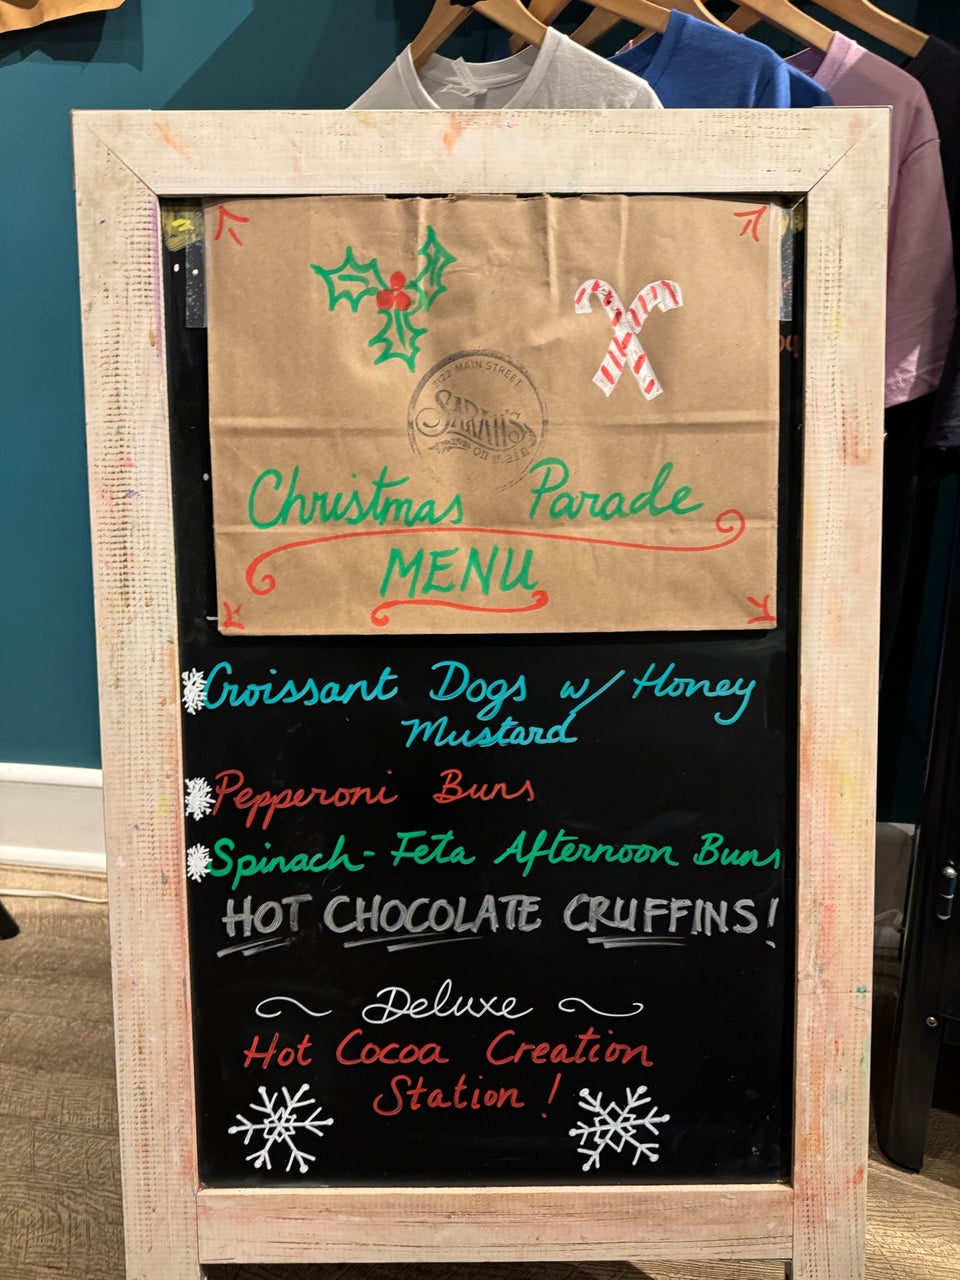 2122 MAIN STREET
SARAH'S
on main
Christmas Parade
MENU
Croissant Dogs w/ Honey
Mustard
Pepperoni Buns
Spinach-Feta Afternoon Buns
HOT CHOCOLATE CRUFFINS!
~ Deluxe ~
Hot Cocoa Creation
Station!